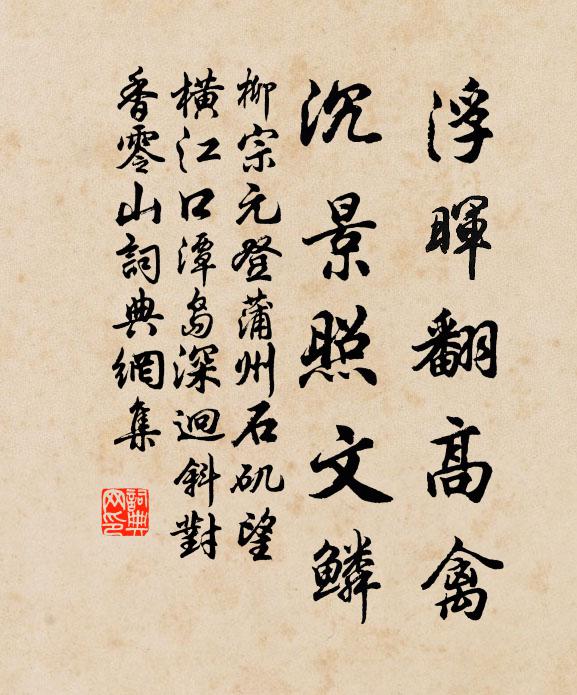 浮暉翻高禽
沉景照文鱗
柳宗元登蒲州石矶望
橫江口潭島深迥斜對
香零山詞典網集
詞典
网印